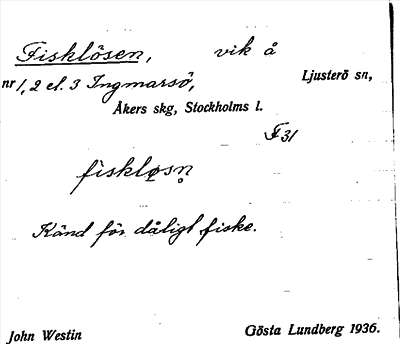 Fisklösen, vik å
nr 1, 2 el. 3 Ingmarsö, Ljusterö sn,
Åkers skg, Stockholms l.
F 31
fiskløsn̥
Känd för dåligt fiske.
John Westin Gösta Lundberg 1936.